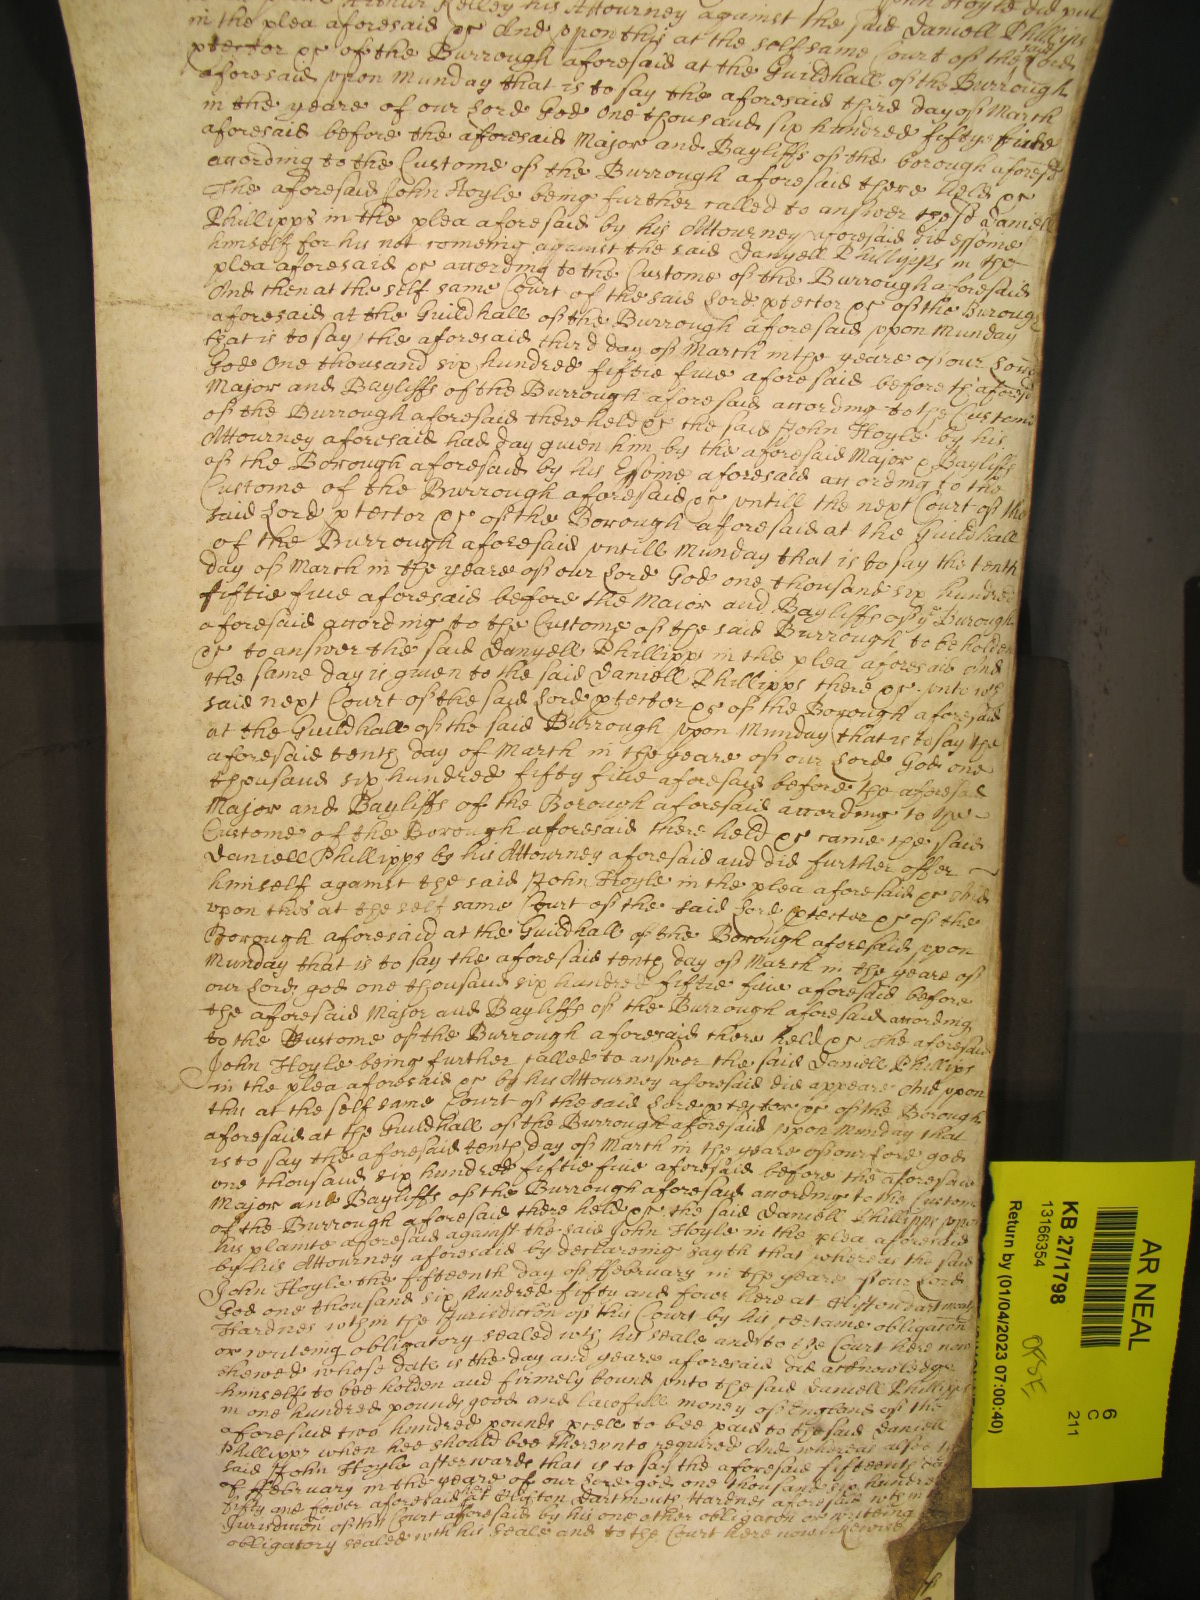 Arthur Kelley his Attourney against the said Daniell Phillips
in the plea aforesaid &c And upon this at the selfsame Court of the said Lord
ptector &c of the Burrough aforesaid at the Guildhall of the Burrough
aforesaid upon Munday that is to say the aforesaid third day of March
in the yeare of our Lord God One thousand six hundred fifty five
aforesaid before the aforesaid Major and Bayliffs of the borough aforesd
according to the Custome of the Burrough aforesaid there held &c
The aforesaid John Hoyle being further called to answer the sd Daniell
Phillipps in the plea aforesaid by his Attourney aforesaid did essoine
himself for his not comeing against the said Danyell Phillipps in the
plea aforesaid &c according to the Custome of the Burrough aforesaid
And then at the self same Court of the said Lord ptector &c of the Burough
aforesaid at the Guildhall of the Burrough aforesaid upon Munday
that is to say the aforesaid third day of March in the yeare of our Lord
God One thousand six hundred fiftie five aforesaid before th aforesd
Major and Bayliffs of the Burrough aforesaid according to the Custome
of the Burrough aforesaid there held &c the said John Hoyle by his
Attourney aforesaid had day given him by the aforesaid Major & Bayliffs
of the Borough aforesaid by his Essoine aforesaid according to the
Custome of the Burrough aforesaid &c untill the next Court of the
said Lord ptector &c of the Borough aforesaid at the Guildhall
of the Burrough aforesaid untill Munday that is to say the tenth
day of March in the yeare of our Lord God one thousand six hundred
fiftie five aforesaid before the Maior and Bayliffs of ye Burough
aforesaid according to the Custome of the said Burrough to be holden
&c to answer the said Danyell Phillipps in the plea aforesaid And
the same day is given to the said Daniell Phillipps there &c
said next Court of the said Lord ptector &c of the Borough aforesaid
at the Guildhall of the said Burrough upon Munday that is to say the
aforesaid tenth day of March in the yeare of our Lord God one
thousand six hundred fifty five aforesaid before the aforesaid
Major and Bayliffs of the Borough aforesaid according to the
Custome of the Borough aforesaid there held &c came the said
Daniell Phillipps by his Attourney aforesaid and did further offer
himself against the said John Hoyle in the plea aforesaid &c And
upon this at the self same Court of the said Lord ptector &c of the
Borough aforesaid at the Guildhall of the Borough aforesaid upon
Munday that is to say the aforesaid tenth day of March in the yeare of
our Lord god one thousand six hundred fiftie five aforesaid before
the aforesaid Major and Bayliffs of the Burrough aforesaid according
to the Custome of the Burrough aforesaid there held &c The aforesaid
John Hoyle being further called to answer the said Daniell Phillips
in the plea aforesaid &c by his Attourney aforesaid did appeare And upon
this at the self same Court of the said Lord ptector &c of the Borough
aforesaid at the Guildhall of the Burrough aforesaid upon Munday that
is to say the aforesaid tenth day of March in the yeare of our Lord god
one thousand six hundred fiftie five aforesaid before the aforesaid
Major and Bayliffs of the Burrough aforesaid according to the Custome
of the Burrough aforesaid there held &c the said Daniell Phillipps upon
his plainte aforesaid against the said John Hoyle in the plea aforesaid
by his Attourney aforesaid by declareing sayth that whereas the said
John Hoyle the fifteenth day of ffebruary in the yeare of our Lord
God one thousand six hundred fifty and fower here at Clifton dartmouth
Hardnes wthin the Jurisdiccon of this Court by his certaine obligacon
or writeing obligatory sealed wth his seale and to the Court here now
shewed whose date is the day and yeare aforesaid did acknowledge
himself to bee holden and firmely bound unto the said Daniell Phillipps
in one hundred pounds good and lawfull money of England of the
aforesaid two hundred pounds pcell to bee paid to the said Daniell
Phillipps when hee should bee thereunto required And whereas alsoe the
said John Hoyle afterwards that is to say the aforesaid fifteenth day
of ffebruary in the yeare of our Lord god one thousand six hundred
fifty and fower aforesaid here at Clifton Dartmouth Hardnes aforesaid wthin
Jurisdiccon of this Court aforesaid by his one other obligacon or writeing
obligatory sealed wth his seale and to the Court here now likewise
AR NEAL
6
C
211
KB 27/1798
13166354
Return by (01/04/2023 07:00:40)